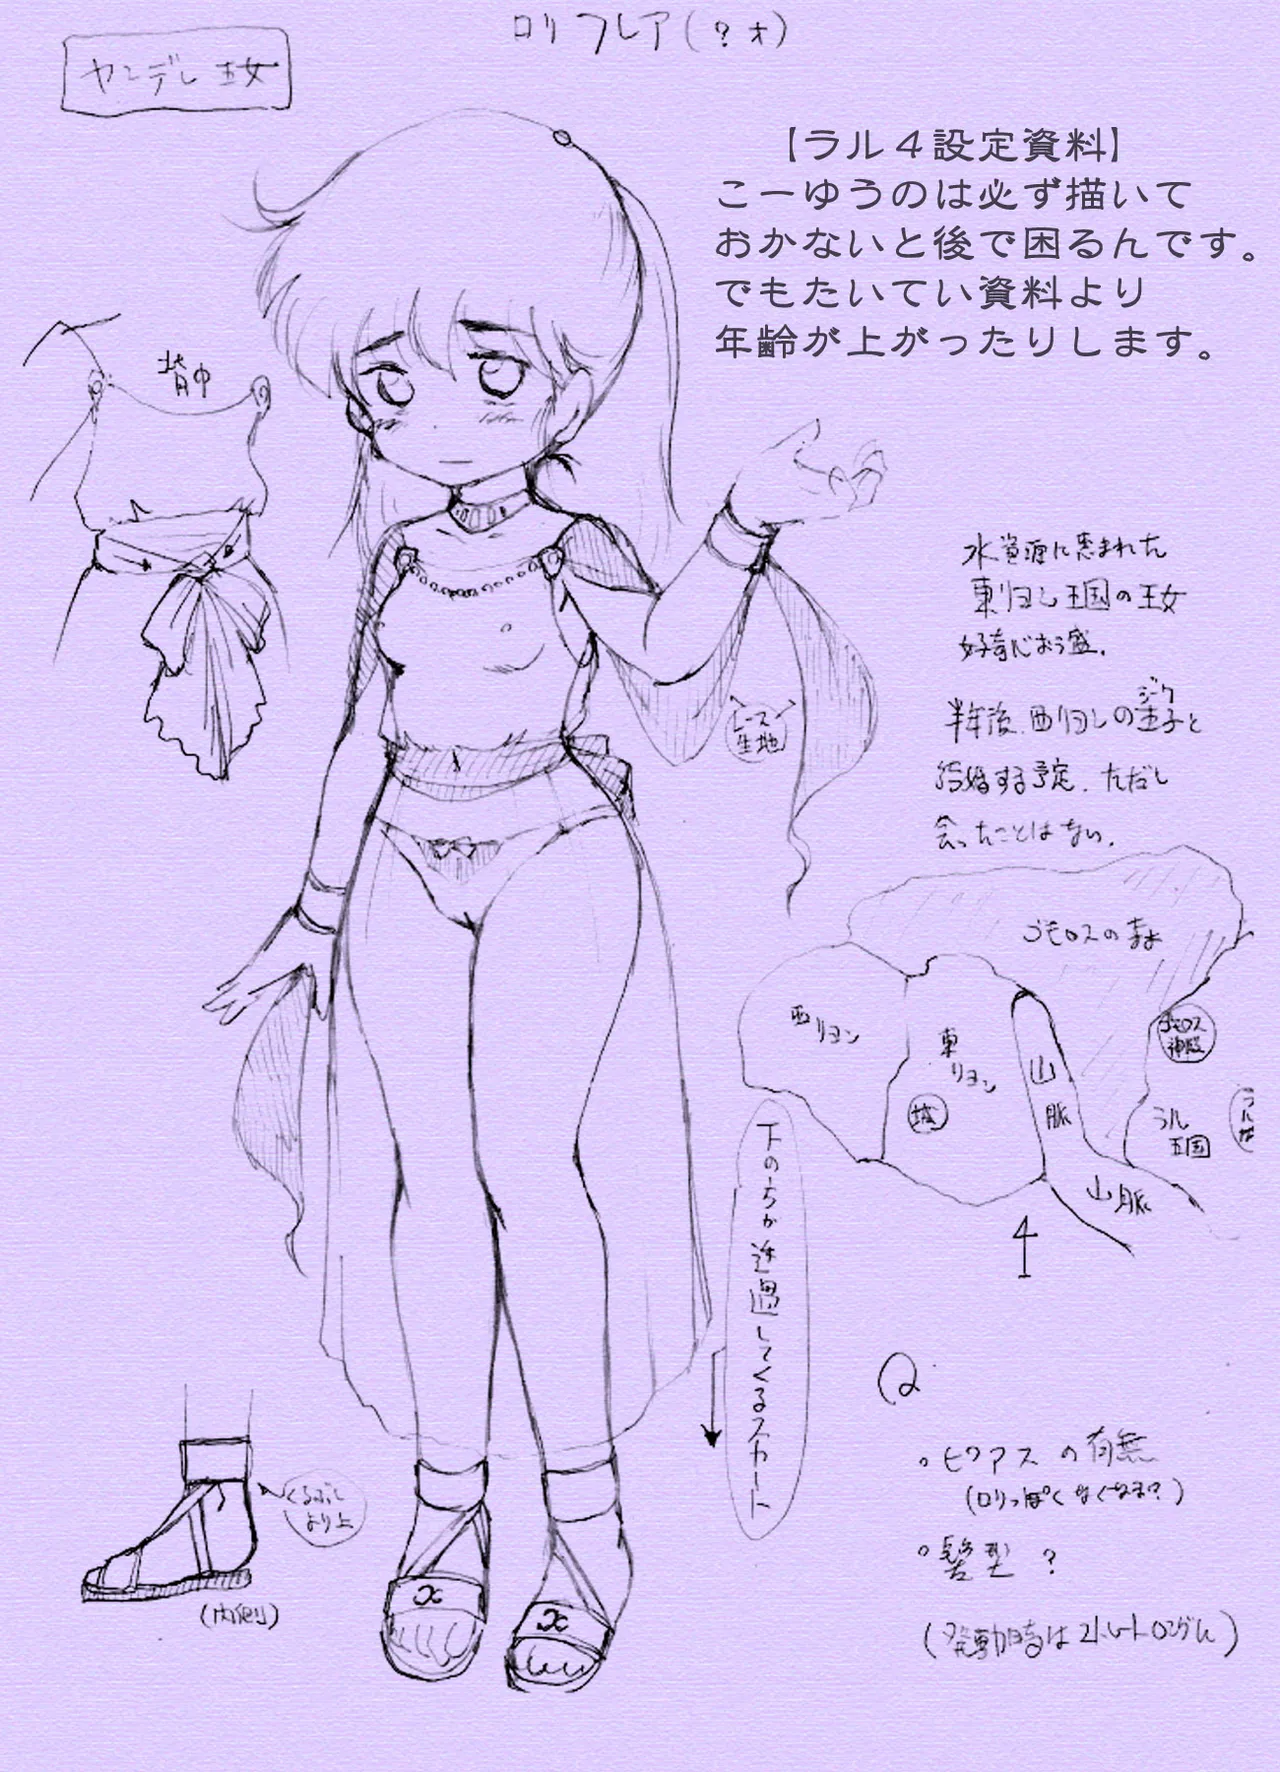 ロリフレア(?才)
ヤンデレ王女
【ラル４設定資料】
こーゆうのは必ず描いて
おかないと後で困るんです。
でもたいてい資料より
年齢が上がったりします。
背中
水資源に恵まれた
東リヨン王国の王女
好奇心おう盛.
ジク
半年後、西リヨンの王子と
結婚する予定.ただし
会ったことはない.
レース
生地
ゴモロスの森
西リヨン
東
リヨン
城
山
脈
ゴモロス
神殿
ラル
王国
山脈
4
下のちが透過してくるスカート
Q
・ピアスの有無
(ロリっぽくなくなる?)
・髪型?
(発動時はストレートロングへ)
くるぶし
より上
(内側)